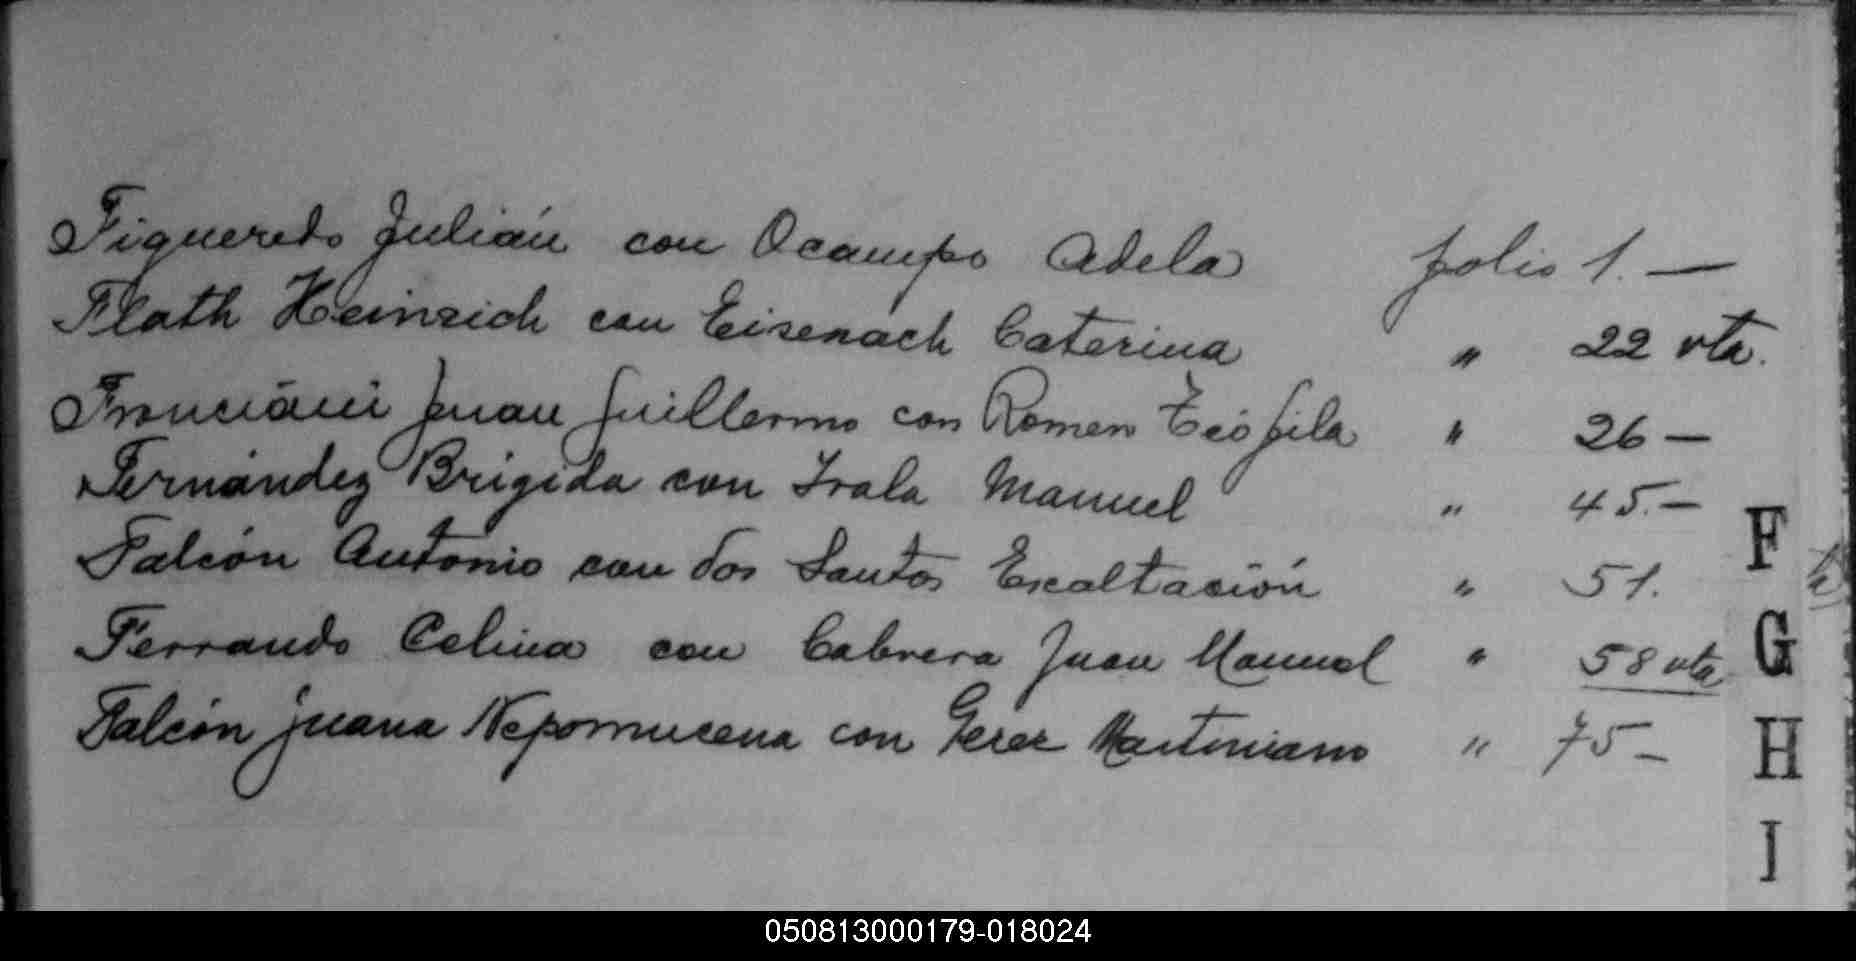 Figueredo Julián con Ocampo Adela folio 1. —
Flath Heinrich con Eisenach Caterina " 22 vta.
Juan Guillermo con Romen Teófila " 26 —
Fernández Brígida con Irala Manuel " 45. —
Falcón Antonio con dos Santos Exaltación " 51.
Ferrando Celina con Cabrera Juan Manuel " 58 vta
Falcón Juana Nepomucena con Gerez Martiniano " 75 —
F
G
H
I
050813000179-018024